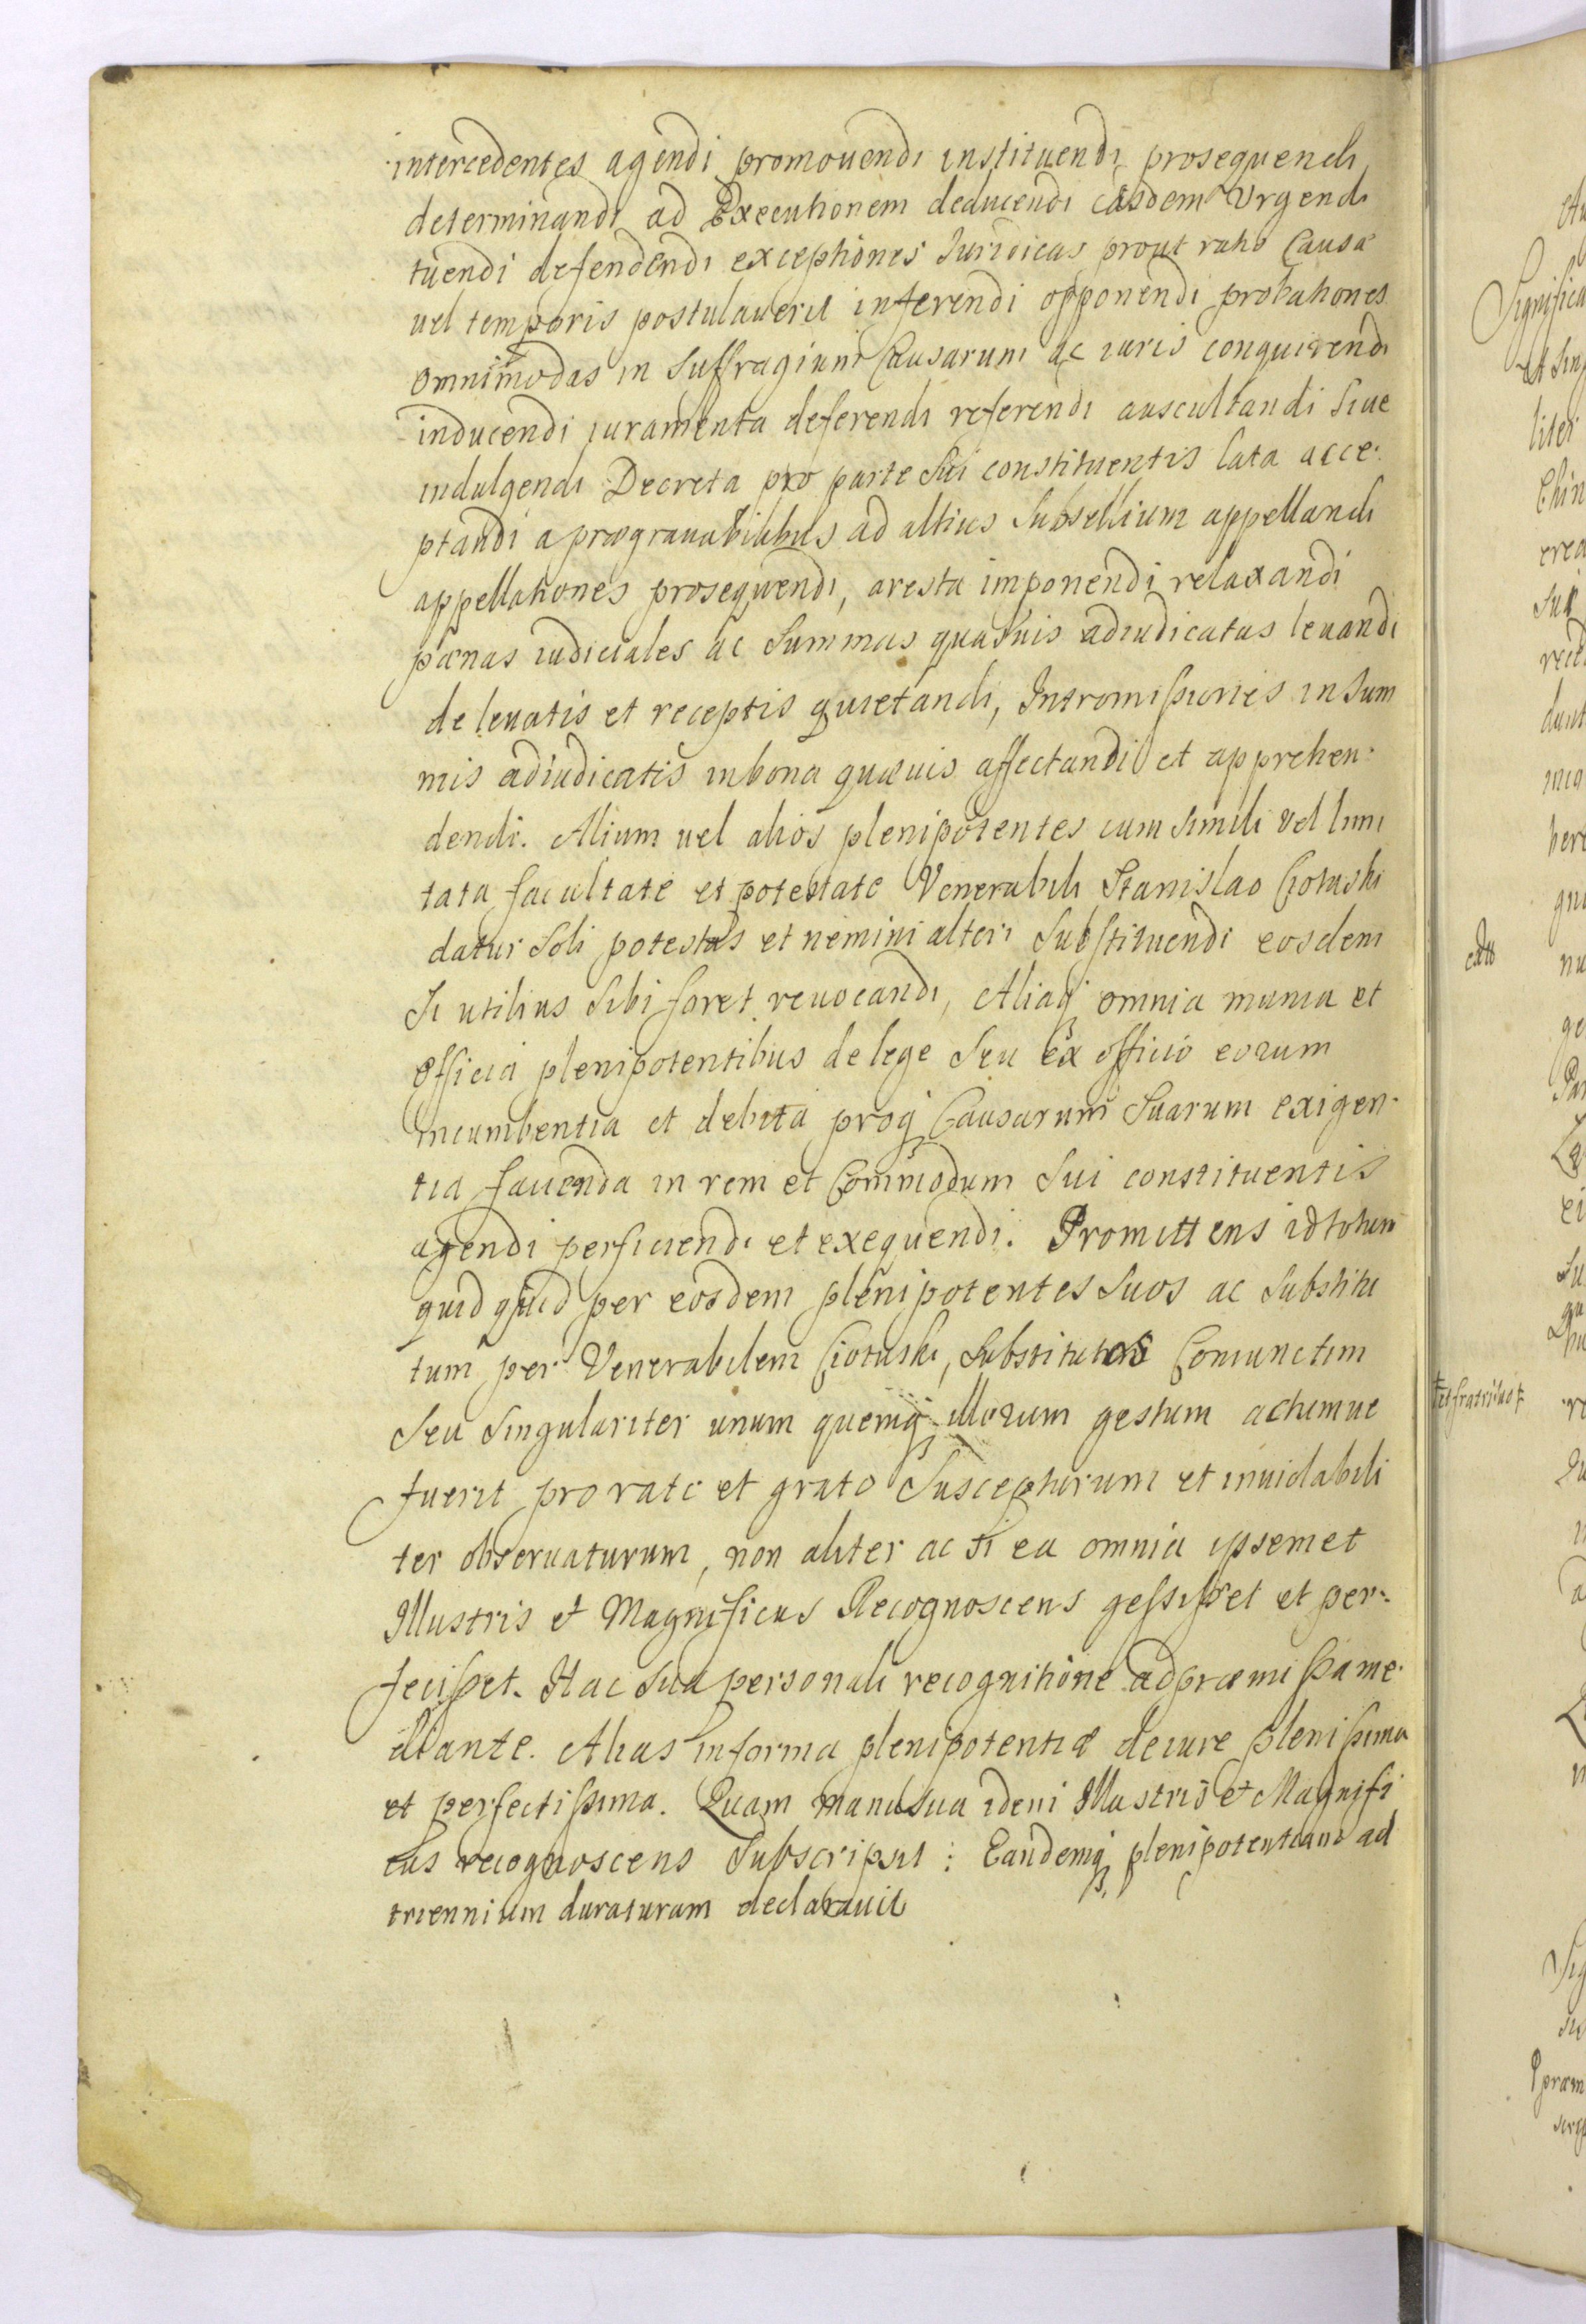 intercedentes agendi promouendi instituendi prosequendi
determinandi ad Executionem deducendi easdem Vrgendi
tuendi defendendi exceptiones Iuridicas prout ratio Causæ
uel temporis postulauerit inferendi opponendi probationes
omnimodas in Suffragium Causarum ac iuris conquirendi
inducendi iuramenta deferendi referendi auscultandi Siue
indulgendi Decreta pro parte Sui constituentis lata acce-
ptandi a prægrauabilibus ad altius Subsellium appellandi
appellationes prosequendi, aresta imponendi relaxandi
pænas iudiciales ac Summas quasuis adiudicatas leuandi
de leuatis et receptis quietandi, Intromissiones in Sum
mis adiudicatis in bona quæuis affectandi et apprehen-
dendi. Alium uel alios plenipotentes cum Simili vel limi
tata facultate et potestate Venerabili Stanislao
datur Soli potestas et nemini alteri Substituendi eosdem
Si utilius Sibi foret reuocandi, Aliaq omnia munia et
officia plenipotentibus de lege Seu ex officio eorum
incumbentia et debita proq Causarum Suarum exigen-
tia fauenda in rem et Commodum Sui constituentis
agendi perficiendi et exequendi. Promittens id totum
quid quid per eosdem plenipotentes Suos ac Substitu
tum per Venerabilem, Substitutos Coniunctim
Seu Singulariter unum quemq illorum gestum actumue
fuerit pro rato et grato Suscepturum et inuiolabili
ter obseruaturum, non aliter ac si ea omnia ipsemet
Illustris et Magnificus Recognoscens gessisset et per-
fecisset. Hac Sua personali recognitione ad præmissa me-
diante. Alias in forma plenipotentiæ de iure plenissima
et perfectissima. Quam manu Sua idem Illustris et Magnifi
cus recognoscens Subscripsit: Eandemq plenipotentiam ad
triennium duraturam declarauit